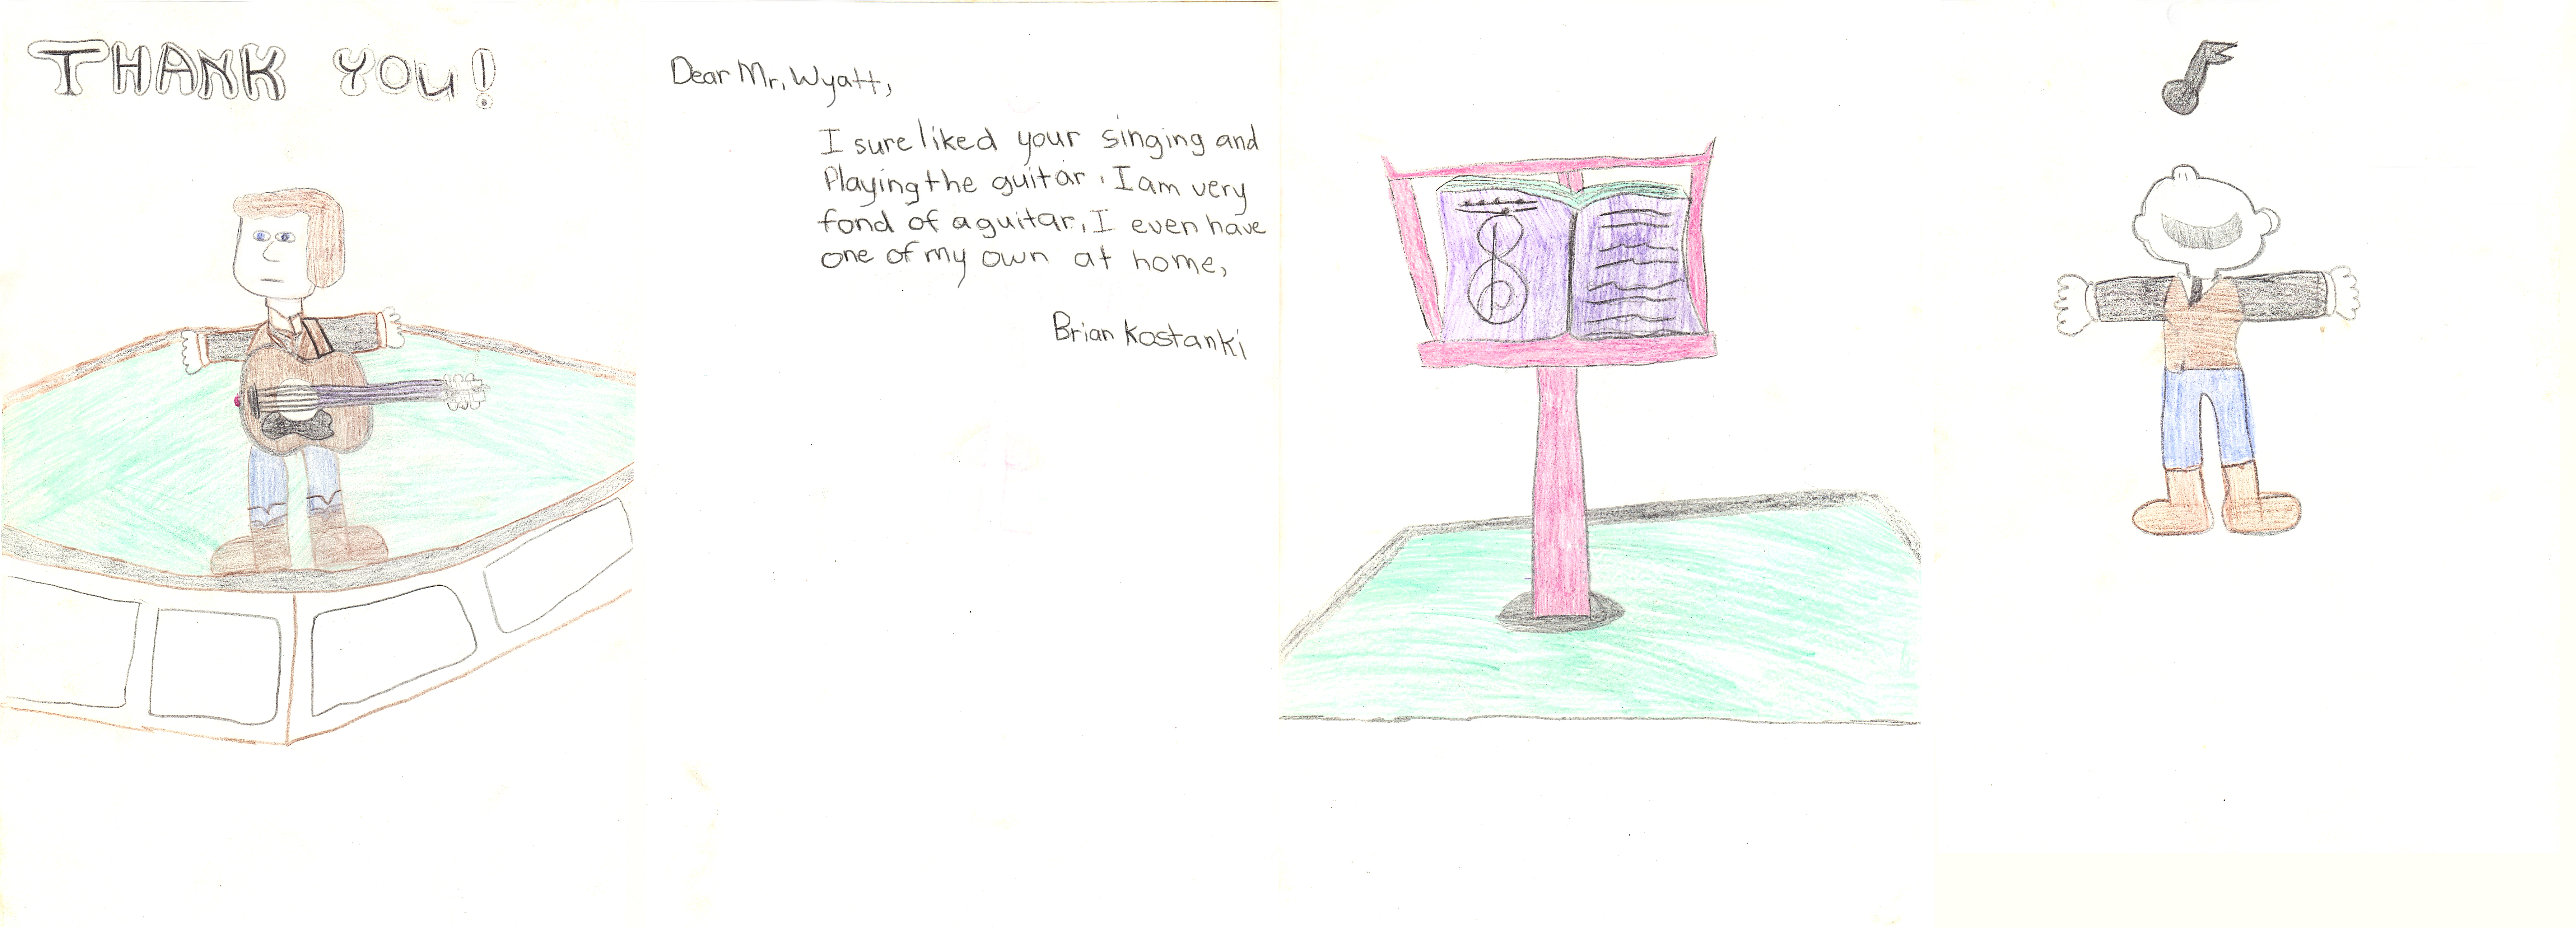 THANK YOU!
Dear Mr. Wyatt,
I sure liked your singing and
Playing the guitar. I am very
fond of a guitar, I even have
one of my own at home,
Brian Kostanki